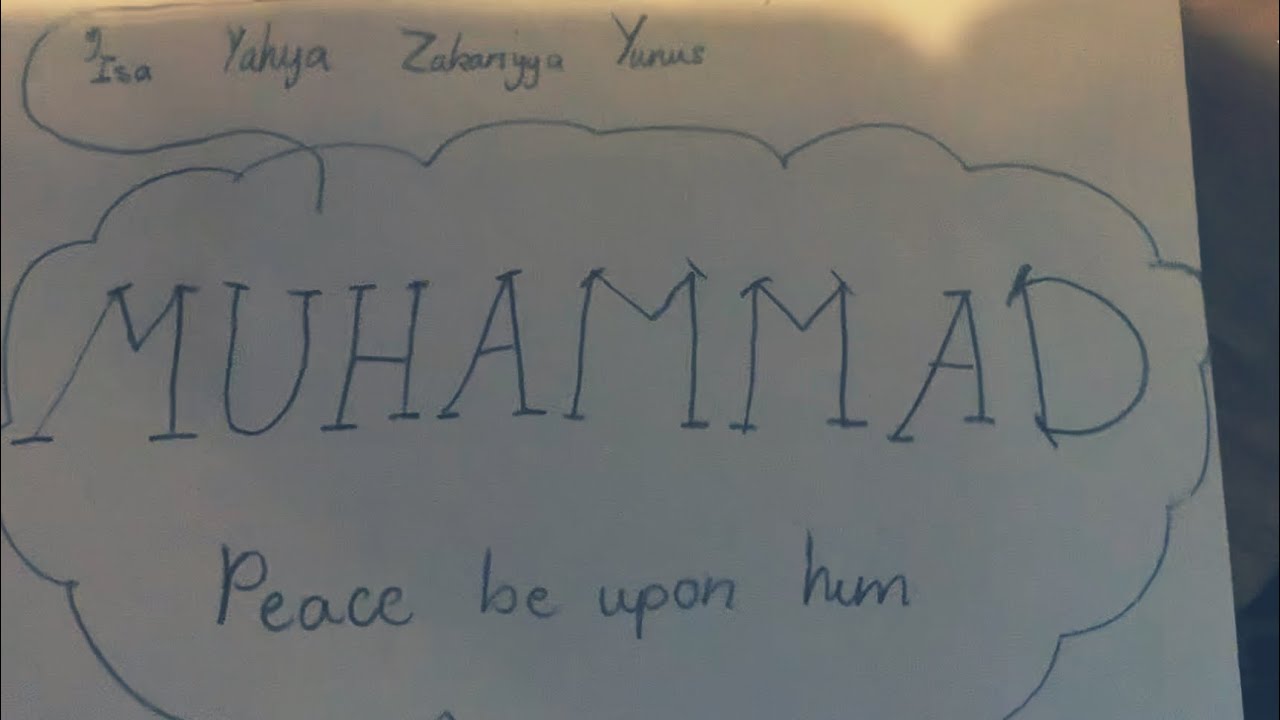 'Isa Yahya Zakariyya Yunus
MUHAMMAD
Peace be upon him